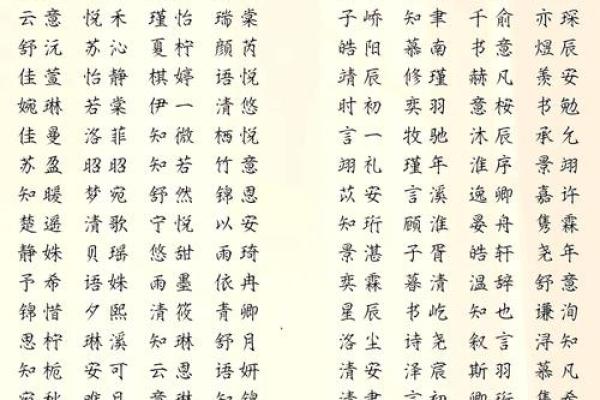 云意 悦禾 瑾怡 瑞棠 子峤 知聿 千俞 亦琛
舒沅 苏沁 夏柠 颜芮 皓阳 慕南 书意 煜辰
佳萱 怡静 棋婷 语悦 靖辰 修瑾 赫凡 羡安
婉琳 若棠 伊一 清悠 时初 奕羽 意桉 书勉
佳曼 洛菲 知微 栖悦 言一 牧驰 沐辰 承允
苏盈 昭昭 知若 竹意 翊礼 瑾年 淮序 景翊
知暖 梦宛 舒然 锦恩 苡安 言溪 逸卿 嘉许
楚遥 清歌 宁悦 以安 知珩 顾淮 晏舟 隽霖
静姝 贝瑶 悠甜 雨琦 景湛 子胥 皓轩 尧年
予希 语姝 雨墨 依冉 奕霖 暮清 温辞 舒意
锦惜 夕熙 清筱 青卿 星辰 书屹 知也 谦洵
思柠 琳溪 知琳 舒月 洛尘 诗尧 叙言 浔知
知栀 安可 云恩 语妍 清安 泽宸 斯羽 慕凡